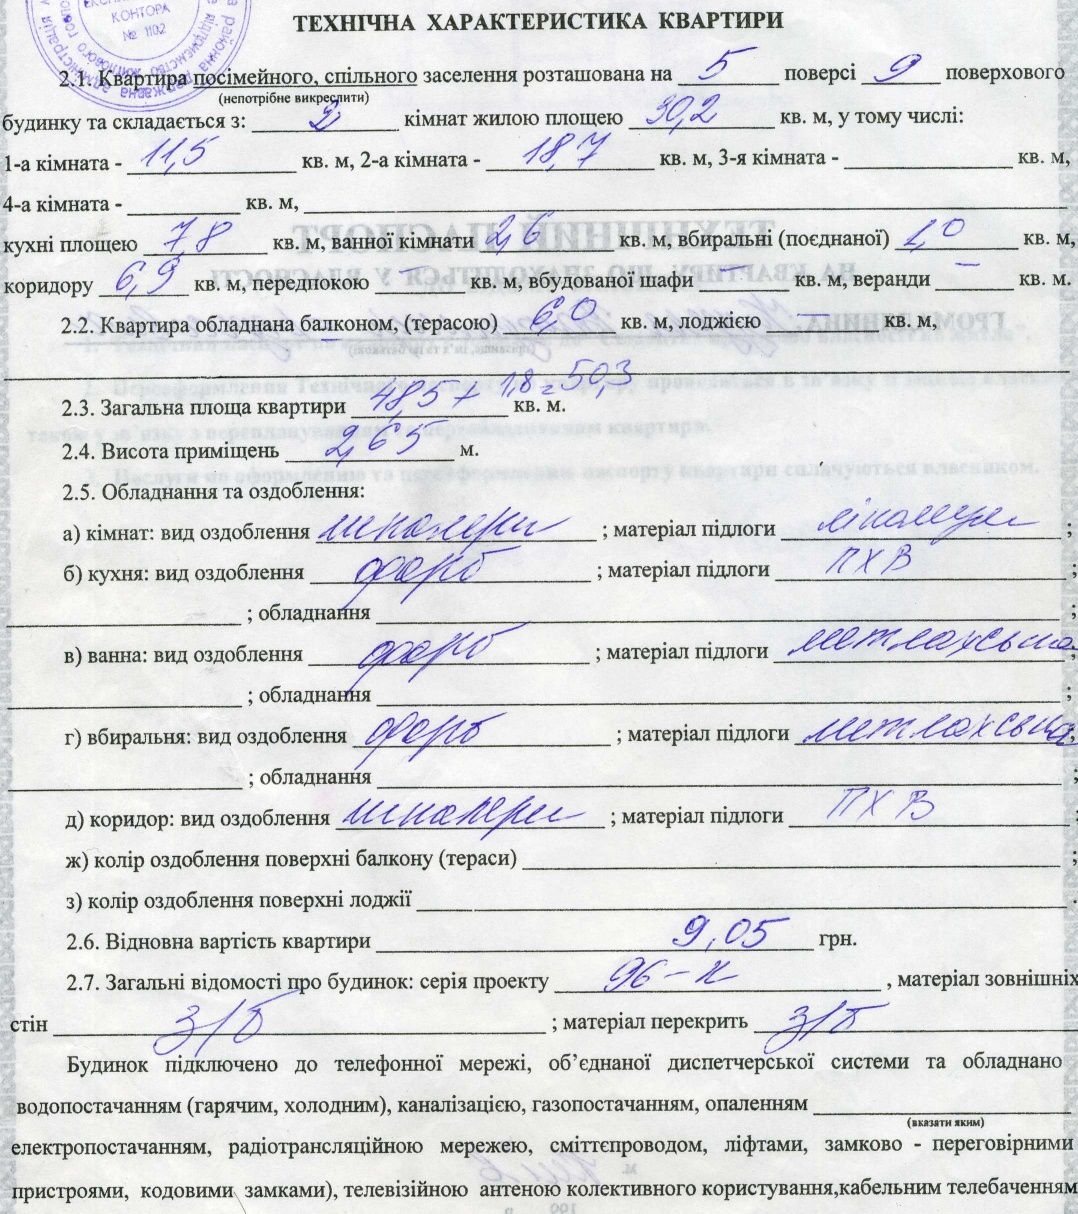 КОНТОРА
№ 1102
ТЕХНІЧНА ХАРАКТЕРИСТИКА КВАРТИРИ
2.1. Квартира посімейного, спільного заселення розташована на 5 поверсі 9 поверхового
(непотрібне викреслити)
будинку та складається з: 2 кімнат жилою площею 30,2 кв. м, у тому числі:
1-а кімната - 11,5 кв. м, 2-а кімната - 18,7 кв. м, 3-я кімната - кв. м,
4-а кімната - кв. м,
кухні площею 7,8 кв. м, ванної кімнати 2,6 кв. м, вбиральні (поєднаної) 1,0 кв. м,
коридору 6,9 кв. м, передпокою — кв. м, вбудованої шафи — кв. м, веранди — кв. м.
2.2. Квартира обладнана балконом, (терасою) 6,0 кв. м, лоджією — кв. м,
2.3. Загальна площа квартири 48,5 + 1,8 = 50,3 кв. м.
2.4. Висота приміщень 2,65 м.
2.5. Обладнання та оздоблення:
а) кімнат: вид оздоблення шпалери ; матеріал підлоги лінолеум ;
б) кухня: вид оздоблення фарб ; матеріал підлоги ПХВ ;
; обладнання ;
в) ванна: вид оздоблення фарб ; матеріал підлоги метлахська ;
; обладнання ;
г) вбиральня: вид оздоблення фарб ; матеріал підлоги метлахська ;
; обладнання ;
д) коридор: вид оздоблення шпалери ; матеріал підлоги ПХВ ;
ж) колір оздоблення поверхні балкону (тераси) ;
з) колір оздоблення поверхні лоджії .
2.6. Відновна вартість квартири 9,05 грн.
2.7. Загальні відомості про будинок: серія проекту 96-к , матеріал зовнішніх
стін з/б ; матеріал перекрить з/б
Будинок підключено до телефонної мережі, об’єднаної диспетчерської системи та обладнано
водопостачанням (гарячим, холодним), каналізацією, газопостачанням, опаленням
(вказати яким)
електропостачанням, радіотрансляційною мережею, сміттєпроводом, ліфтами, замково - переговірними
пристроями, кодовими замками), телевізійною антеною колективного користування,кабельним телебаченням